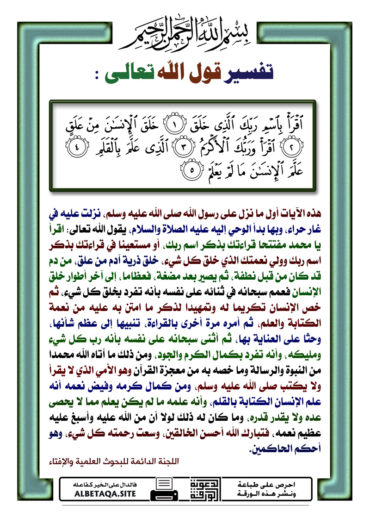 بِسْمِ اللَّهِ الرَّحْمَٰنِ الرَّحِيمِ
تفسير قول الله تعالى :
ٱقۡرَأۡ بِٱسۡمِ رَبِّكَ ٱلَّذِي خَلَقَ ١ خَلَقَ ٱلۡإِنسَٰنَ مِنۡ عَلَقٍ
٢ ٱقۡرَأۡ وَرَبُّكَ ٱلۡأَكۡرَمُ ٣ ٱلَّذِي عَلَّمَ بِٱلۡقَلَمِ ٤
عَلَّمَ ٱلۡإِنسَٰنَ مَا لَمۡ يَعۡلَمۡ ٥
هذه الآيات أول ما نزل على رسول الله صلى الله عليه وسلم، نزلت عليه في
غار حراء، وبها بدأ الوحي إليه عليه الصلاة والسلام، يقول الله تعالى: اقرأ
يا محمد مفتتحا قراءتك بذكر اسم ربك، أو مستعينا في قراءتك بذكر
اسم ربك وولي نعمتك الذي خلق كل شيء، خلق ذرية آدم من علق، من دم
قد كان من قبل نطفة، ثم يصير بعد مضغة، فعظاما، إلى آخر أطوار خلق
الإنسان فعمم سبحانه في ثنائه على نفسه بأنه تفرد بخلق كل شيء، ثم
خص الإنسان تكريما له وتمهيدا لذكر ما امتن به عليه من نعمة
الكتابة والعلم، ثم أمره مرة أخرى بالقراءة، تنبيها إلى عظم شأنها،
وحثا على العناية بها، ثم أثنى سبحانه على نفسه بأنه رب كل شيء
ومليكه، وأنه تفرد بكمال الكرم والجود، ومن ذلك ما آتاه الله محمدا
من النبوة والرسالة وما خصه به من معجزة القرآن وهو الأمي الذي لا يقرأ
ولا يكتب صلى الله عليه وسلم، ومن كمال كرمه وفيض نعمه أنه
علم الإنسان الكتابة بالقلم، وأنه علمه ما لم يكن يعلم مما لا يحصى
عده ولا يقدر قدره، وما كان له ذلك لولا أن من الله عليه وأسبغ عليه
عظيم نعمه، فتبارك الله أحسن الخالقين، وسعت رحمته كل شيء، وهو
أحكم الحاكمين.
اللجنة الدائمة للبحوث العلمية والإفتاء
احرص على طباعة
ونشر هذه الورقة
الدعوية
الورقية
فالدال على الخير كفاعله
ALBETAQA.SITE